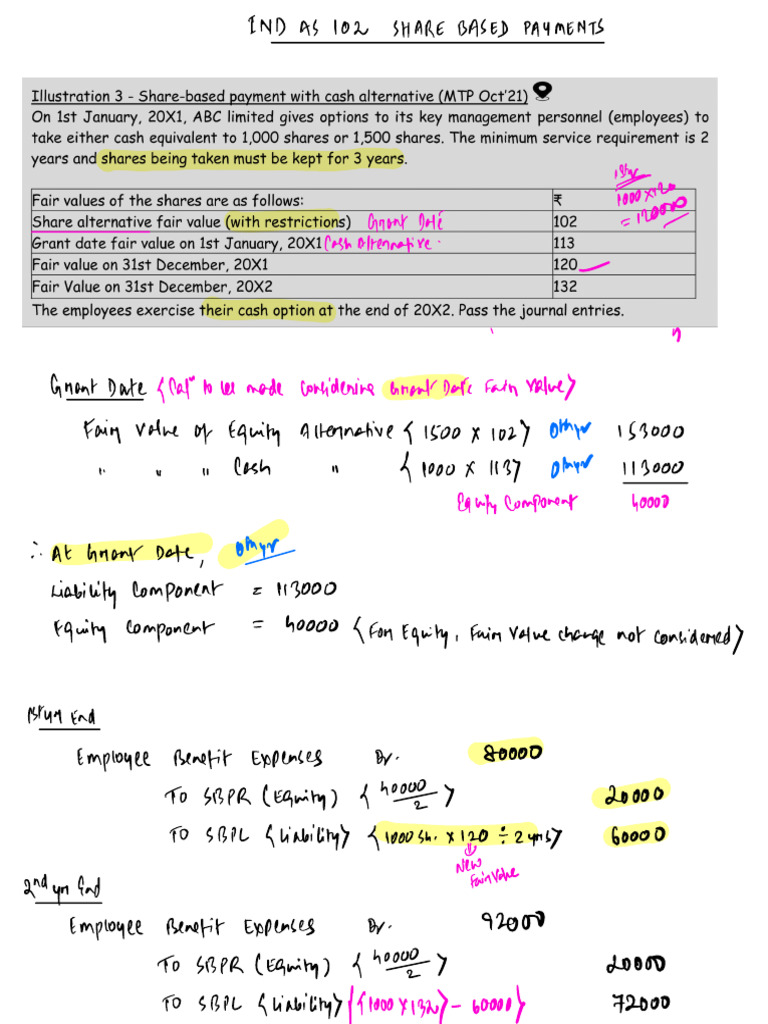 IND AS 102 SHARE BASED PAYMENTS
Illustration 3 - Share-based payment with cash alternative (MTP Oct'21)
On 1st January, 20X1, ABC limited gives options to its key management personnel (employees) to
take either cash equivalent to 1,000 shares or 1,500 shares. The minimum service requirement is 2
years and shares being taken must be kept for 3 years.
1st yr
1000 x 120
= 120000
Fair values of the shares are as follows: ₹
Share alternative fair value (with restrictions) Grant Date 102
Grant date fair value on 1st January, 20X1 Cash Alternative. 113
Fair value on 31st December, 20X1 120
Fair Value on 31st December, 20X2 132
The employees exercise their cash option at the end of 20X2. Pass the journal entries.
Grant Date {Calⁿ to be made considering Grant Date Fair Value}
Fair Value of Equity Alternative {1500 x 102} 0th yr 153000
" " " Cash " {1000 x 113} 0th yr 113000
Equity Component 40000
∴ At Grant Date, 0th yr
Liability Component = 113000
Equity Component = 40000 {For Equity, Fair Value change not considered}
1st yr End
Employee Benefit Expenses Dr. 80000
TO SBPR (Equity) {40000/2} 20000
TO SBPL {Liability} {1000 sh. x 120 ÷ 2 yrs} 60000
New
Fair Value
2nd yr End
Employee Benefit Expenses Dr. 92000
TO SBPR (Equity) {40000/2} 20000
TO SBPL {Liability} {(1000 x 132) - 60000} 72000